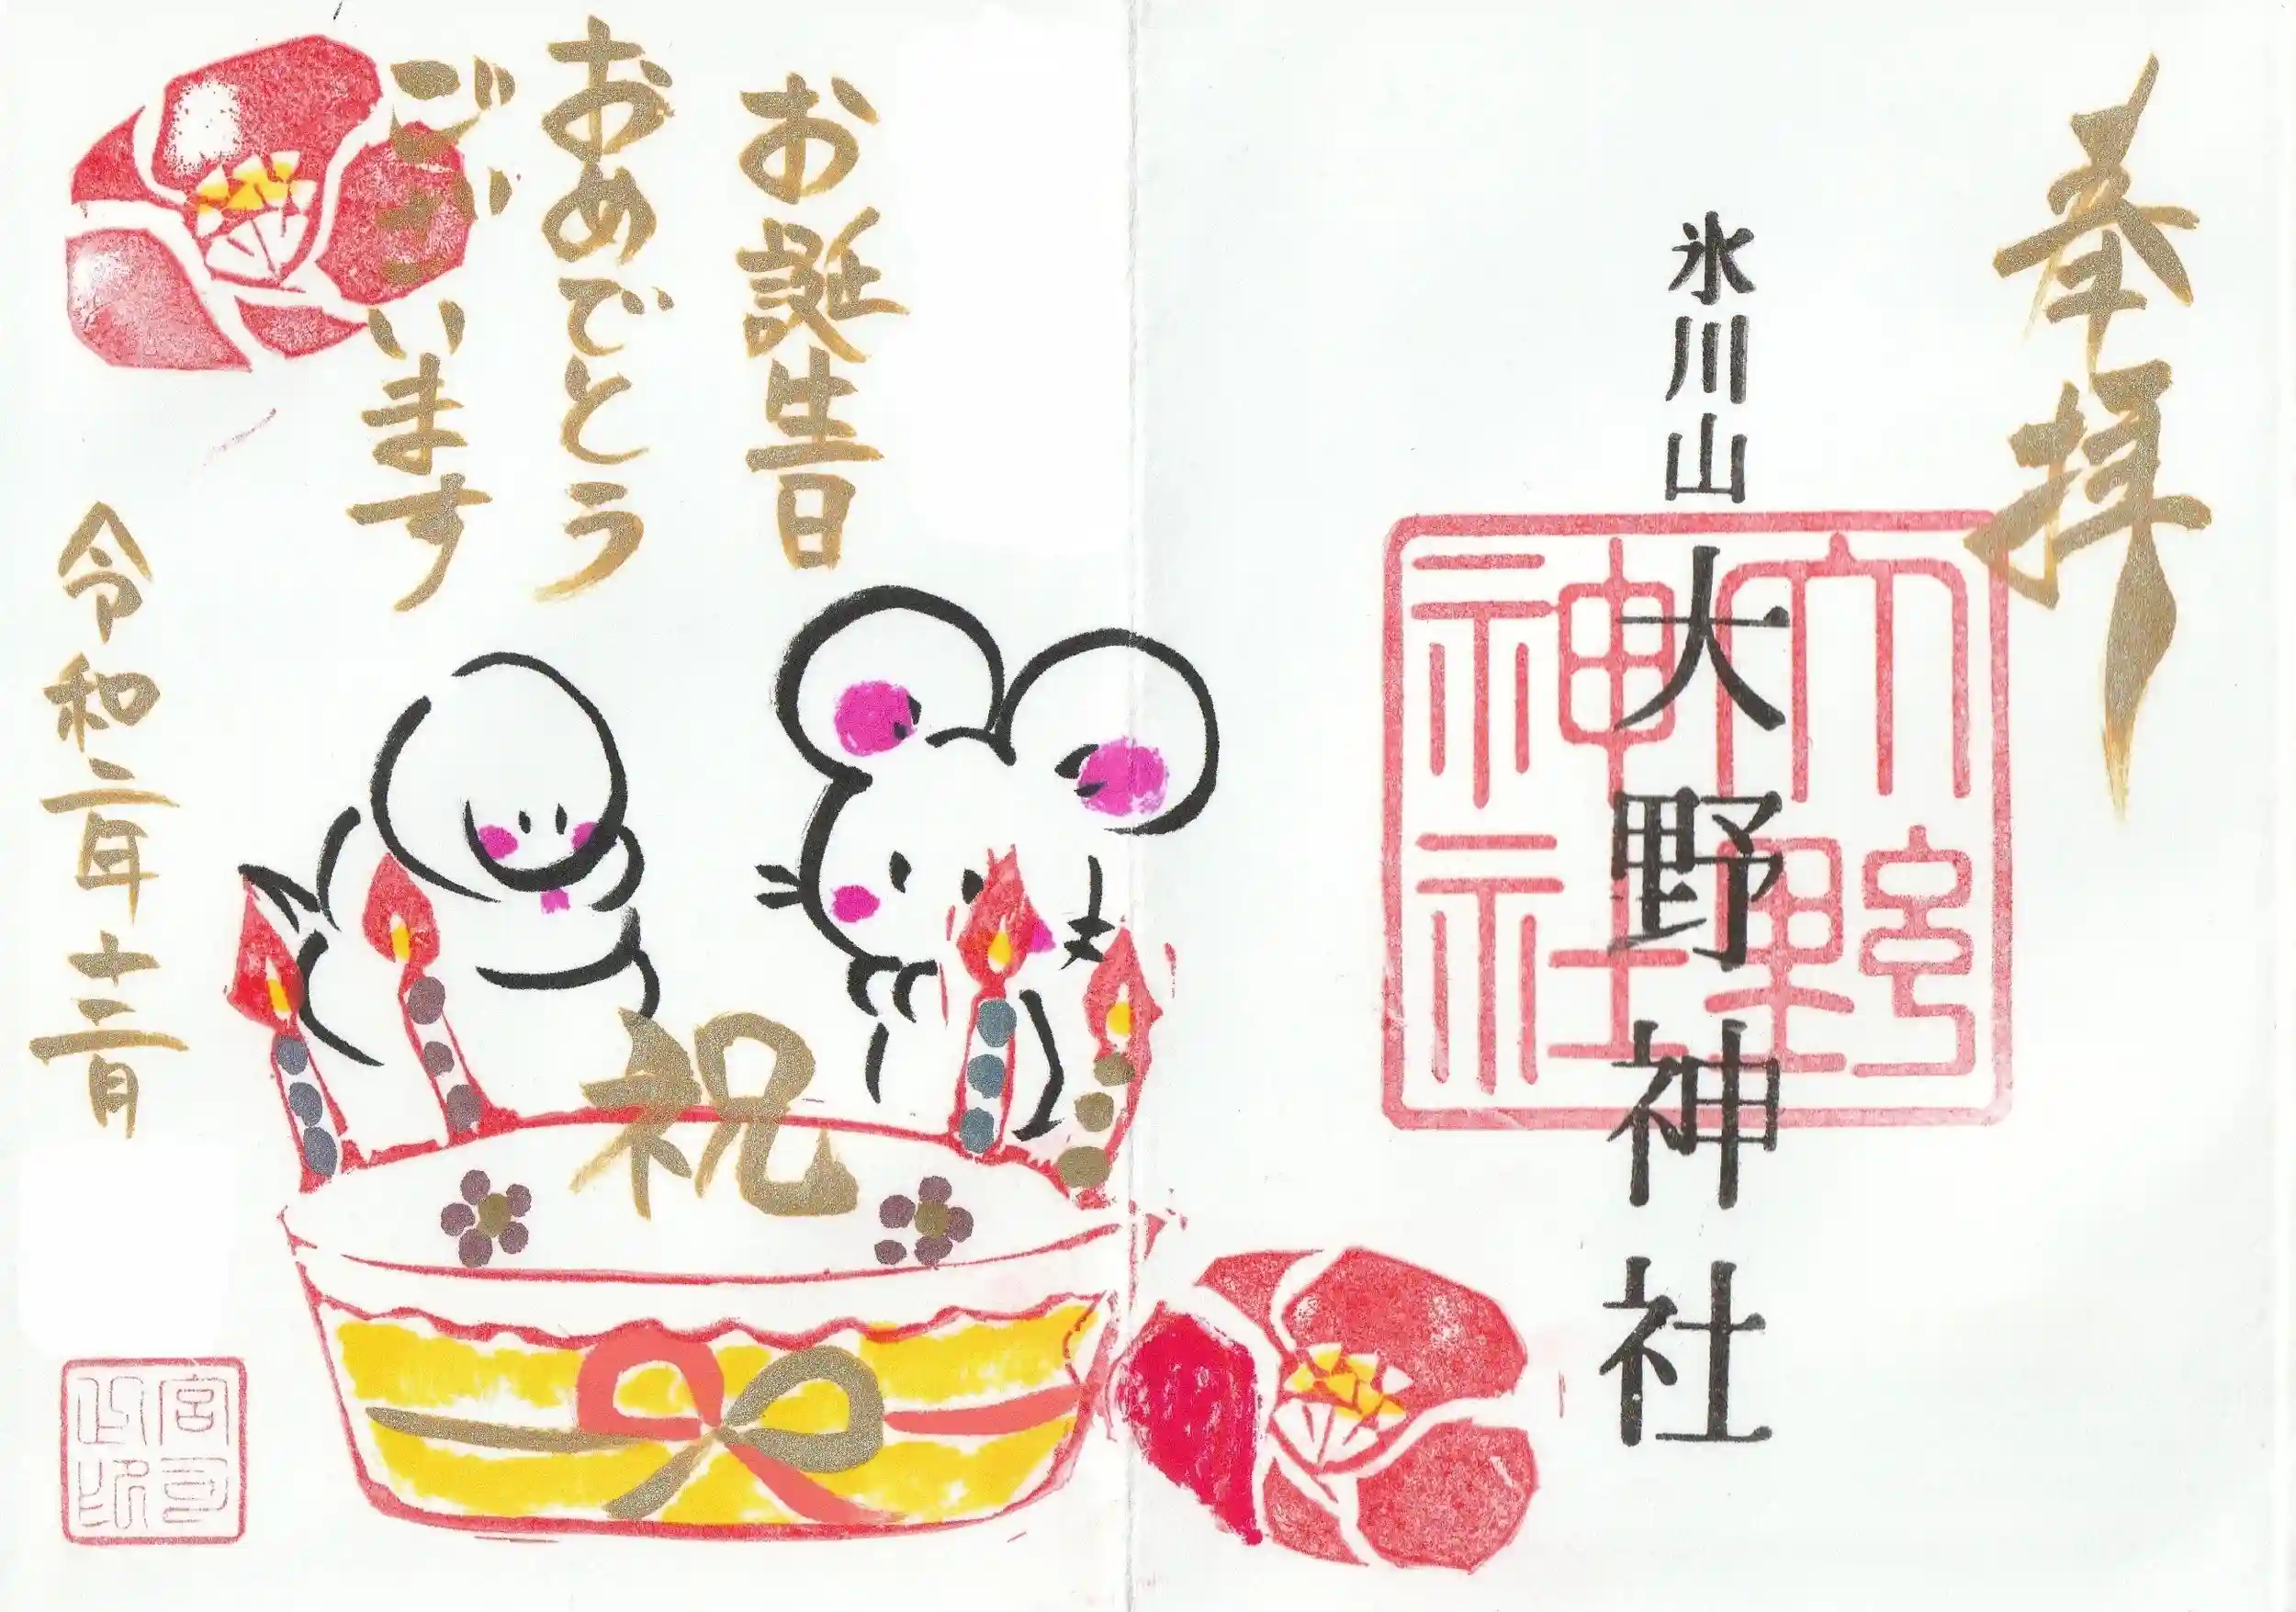 奉拝
氷川山
大野神社
大野
神社
お誕生日
おめでとう
ございます
祝
令和二年十二月
宮司
之印